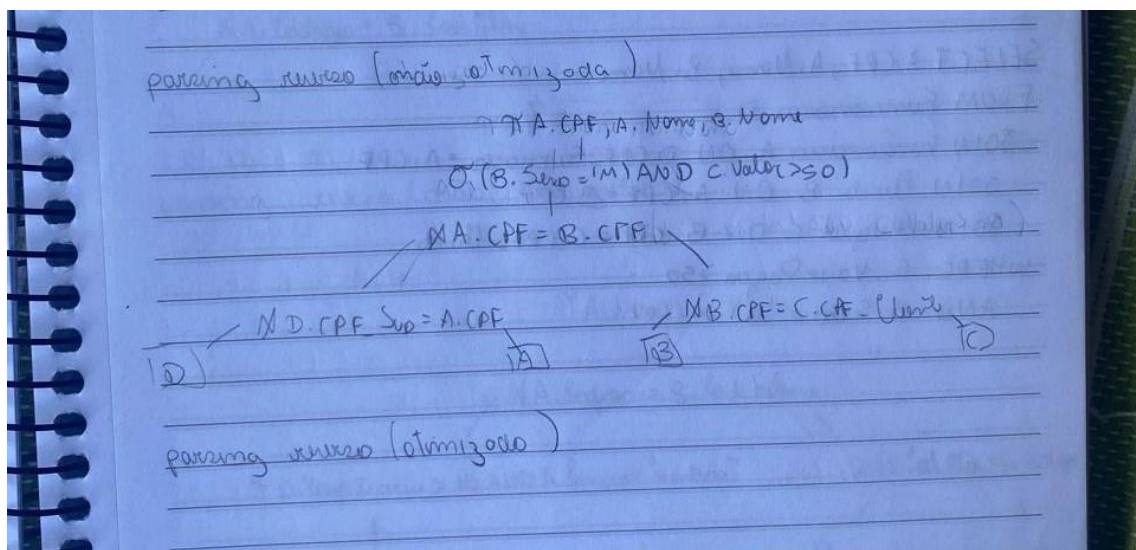 parsing reverso (não otimizada)
π A.CPF, A. Nome, B. Nome
σ (B. Sexo = 'M) AND C. Valor > 50)
⋈ A. CPF = B. CPF
⋈ D. CPF_Sup = A. CPF ⋈ B. CPF = C. CPF_Cliente
D A B C
parsing reverso (otimizado)